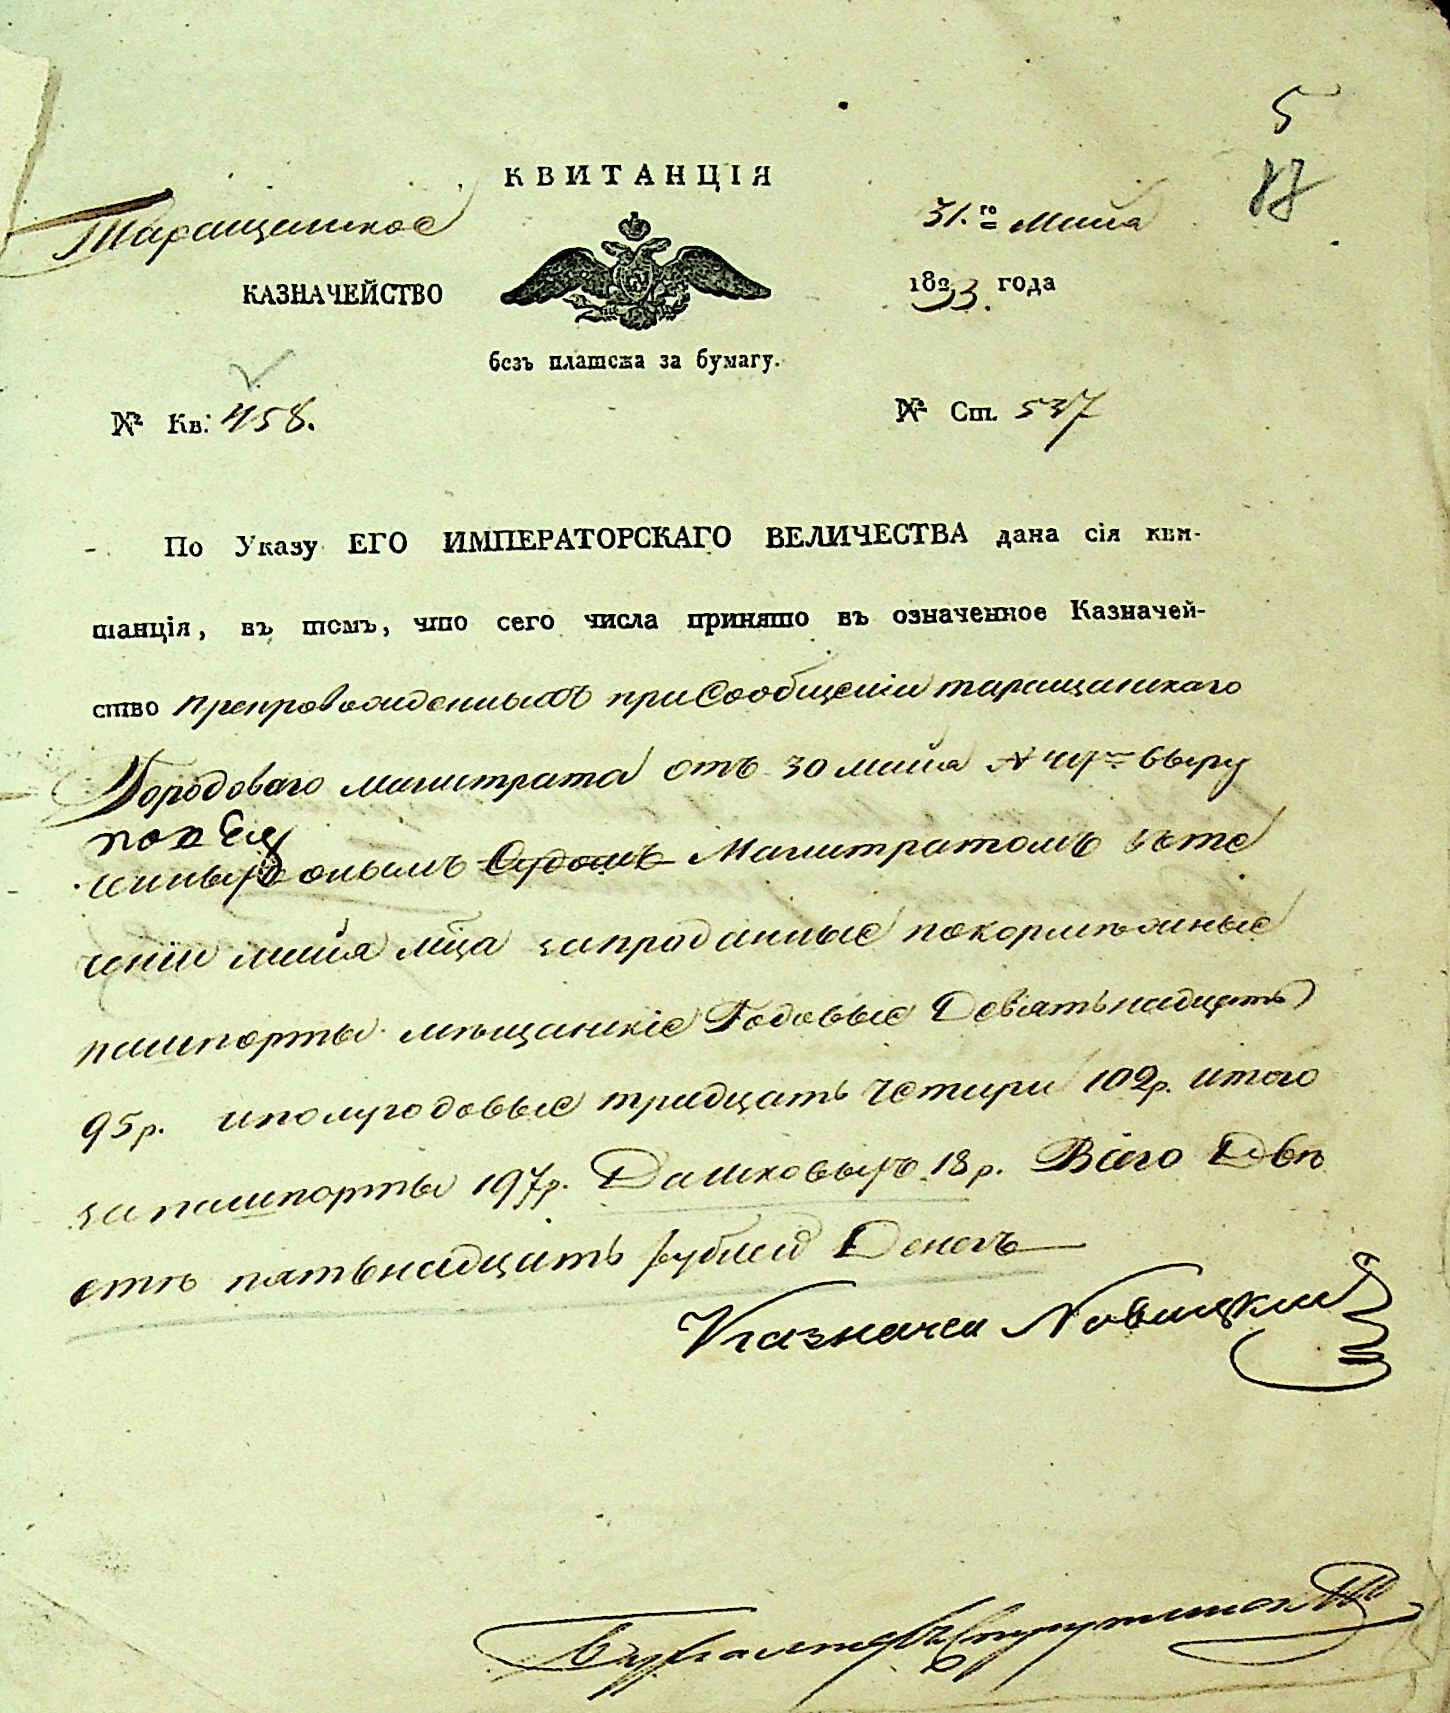 5
17
КВИТАНЦІЯ
Таращанское
31.го Маія
КАЗНАЧЕЙСТВО
1833. года
безъ платежа за бумагу.
№ Кв: 458.
№ Ст. 537
По Указу ЕГО ИМПЕРАТОРСКАГО ВЕЛИЧЕСТВА дана сія кви-
танція, въ томъ, что сего числа принято въ означенное Казначей-
ство препровожденныхъ при Сообщеніи таращанскаго
Городоваго магистрата отъ 30 маія № выру
ченныхъ онымъ Судомъ Магистратомъ въ те
ченіи маія мца запроданные покормежные
пашпорты мѣщанскіе Годовые Девятьнадцать
95р. и полугодовые тридцать Четири 102р. итого
за пашпорты 197р. 18р. Всего Двѣ
стѣ пятьнадцать рублей Денегъ
Казначей Новицкий
Бухгалтеръ